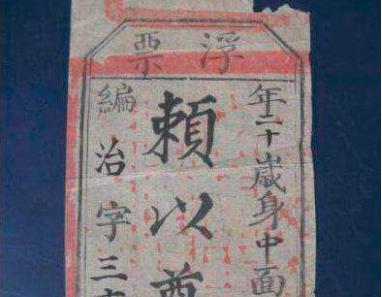 浮票
年二十歲身中面
賴以尊
編治字三